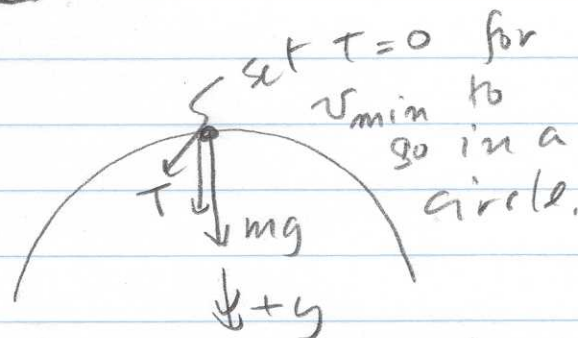 set T=0 for
v min to
go in a
circle.
T
mg
+y